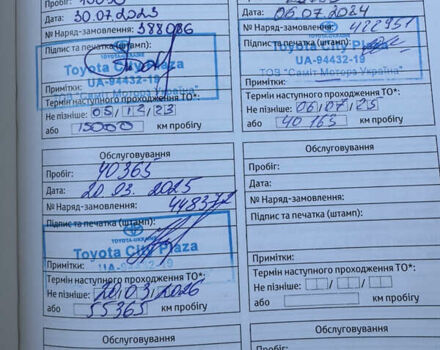 Пробіг:
Дата: 30.07.2023
№ Наряд-замовлення: 388086
Підпис та печатка (штамп):
TOYOTA-UKRAINE
Toyota City Plaza
UA-94432-19
ТОВ "Саміт Моторз Україна"
Примітки:
Термін наступного проходження ТО*:
Не пізніше:
або 15000 км пробігу
Дата: 06.07.2024
№ Наряд-замовлення: 422951
Підпис та печатка (штамп):
Toyota City Plaza
UA-94432-19
ТОВ "Саміт Моторз Україна"
Примітки:
Термін наступного проходження ТО*:
Не пізніше: 06/07/25
або 40 163 км пробігу
Обслуговування
Пробіг: 40365
Дата: 20.03.2025
№ Наряд-замовлення: 448372
Підпис та печатка (штамп):
TOYOTA-UKRAINE
Toyota City Plaza
UA-94432-19
Примітки:
Термін наступного проходження ТО*:
Не пізніше: 20/03/2026
або 55365 км пробігу
Обслуговування
Пробіг:
Дата:
№ Наряд-замовлення:
Підпис та печатка (штамп):
Примітки:
Термін наступного проходження ТО*:
Не пізніше:
або км пробігу
Обслуговування
Пробіг:
Обслуговування